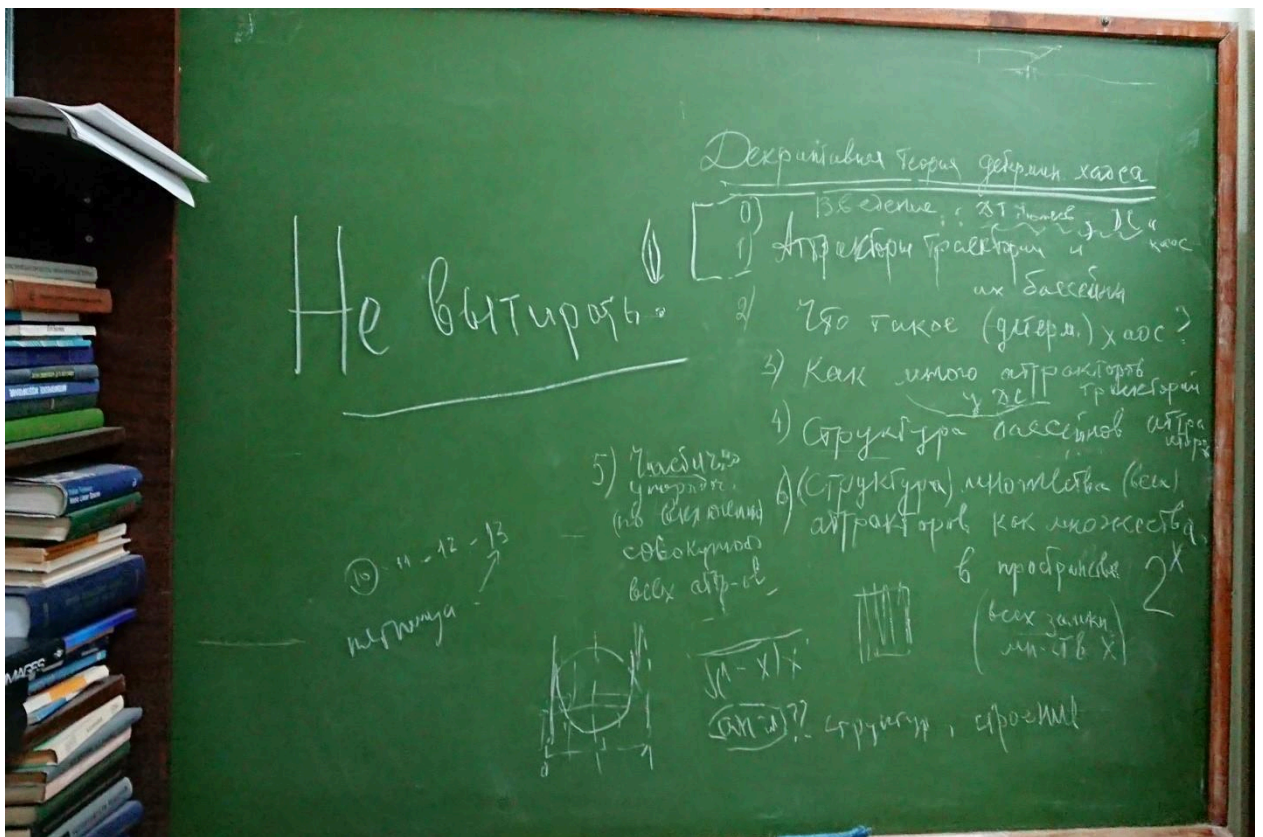 Не вытирать!
Декриптивная теория детермин. хаоса
0) Введение
1) Аттракторы траекторий и
их бассейны
хаос"
2) Что такое (детерм.) хаос?
3) Как много аттракторов
траекторий
у ДС
4) Структура бассейнов аттра
5) Частично
упоряд.
(по включению)
совокупность
всех аттр-ов
6) (Структура) множества (всех)
аттракторов как множества
в пространстве 2^X
(всех замкн.
мн-тв X)
10 - 11 - 12 - 13
пятница
√(1-x)x
?? структур, строение
0 1
IMAGES